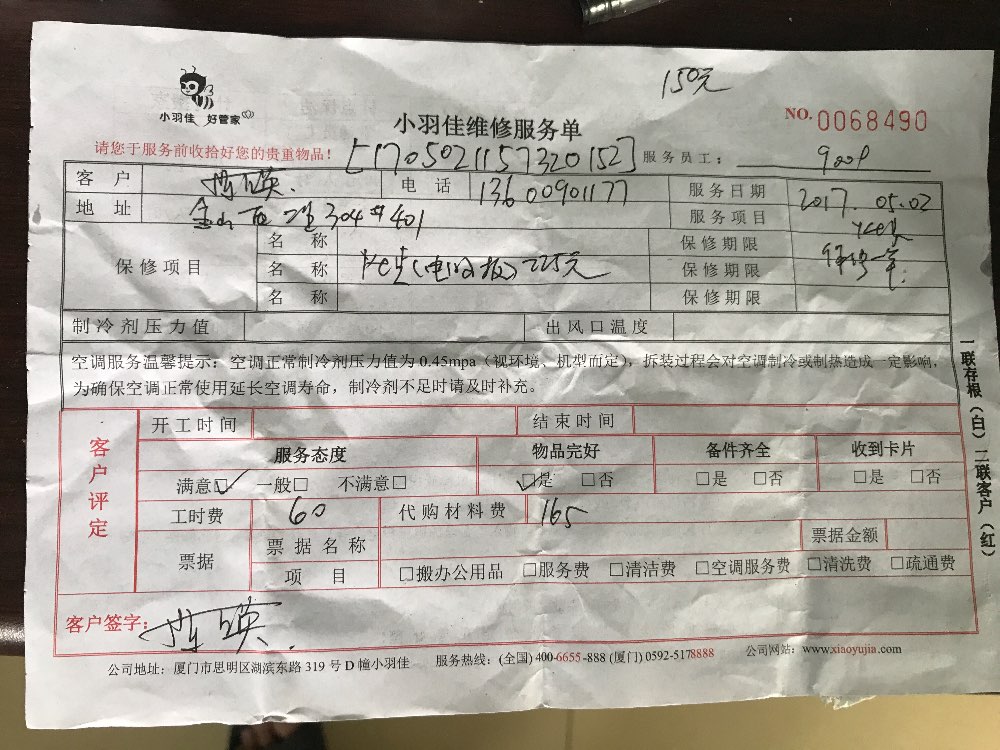 150元
小羽佳 好管家
小羽佳维修服务单
NO. 0068490
请您于服务前收拾好您的贵重物品！
[1705021157320152]
服务员工：
客户 电话 13600901177 服务日期 2017.05.02
地址 304 401 服务项目
保修项目
名称 保修期限
名称 (电脑板)225元 保修期限
名称 保修期限
制冷剂压力值 出风口温度
空调服务温馨提示：空调正常制冷剂压力值为 0.45mpa（视环境、机型而定），拆装过程会对空调制冷或制热造成一定影响，
为确保空调正常使用延长空调寿命，制冷剂不足时请及时补充。
客户评定
开工时间 结束时间
服务态度 物品完好 备件齐全 收到卡片
满意□✓ 一般□ 不满意□ ☑是 □否 □是 □否 □是 □否
工时费 60 代购材料费 165
票据 票据名称 票据金额
项目 □搬办公用品 □服务费 □清洁费 □空调服务费 □清洗费 □疏通费
客户签字：
公司地址：厦门市思明区湖滨东路 319 号 D 幢小羽佳 服务热线：(全国) 400-6655-888 (厦门) 0592-5178888 公司网站：www.xiaoyujia.com
一联存根（白）二联客户（红）